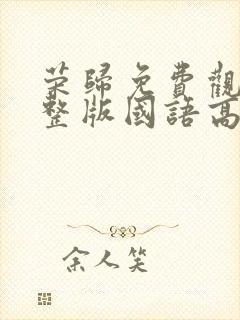 荣歸免費觀
整版國語高
余人笑